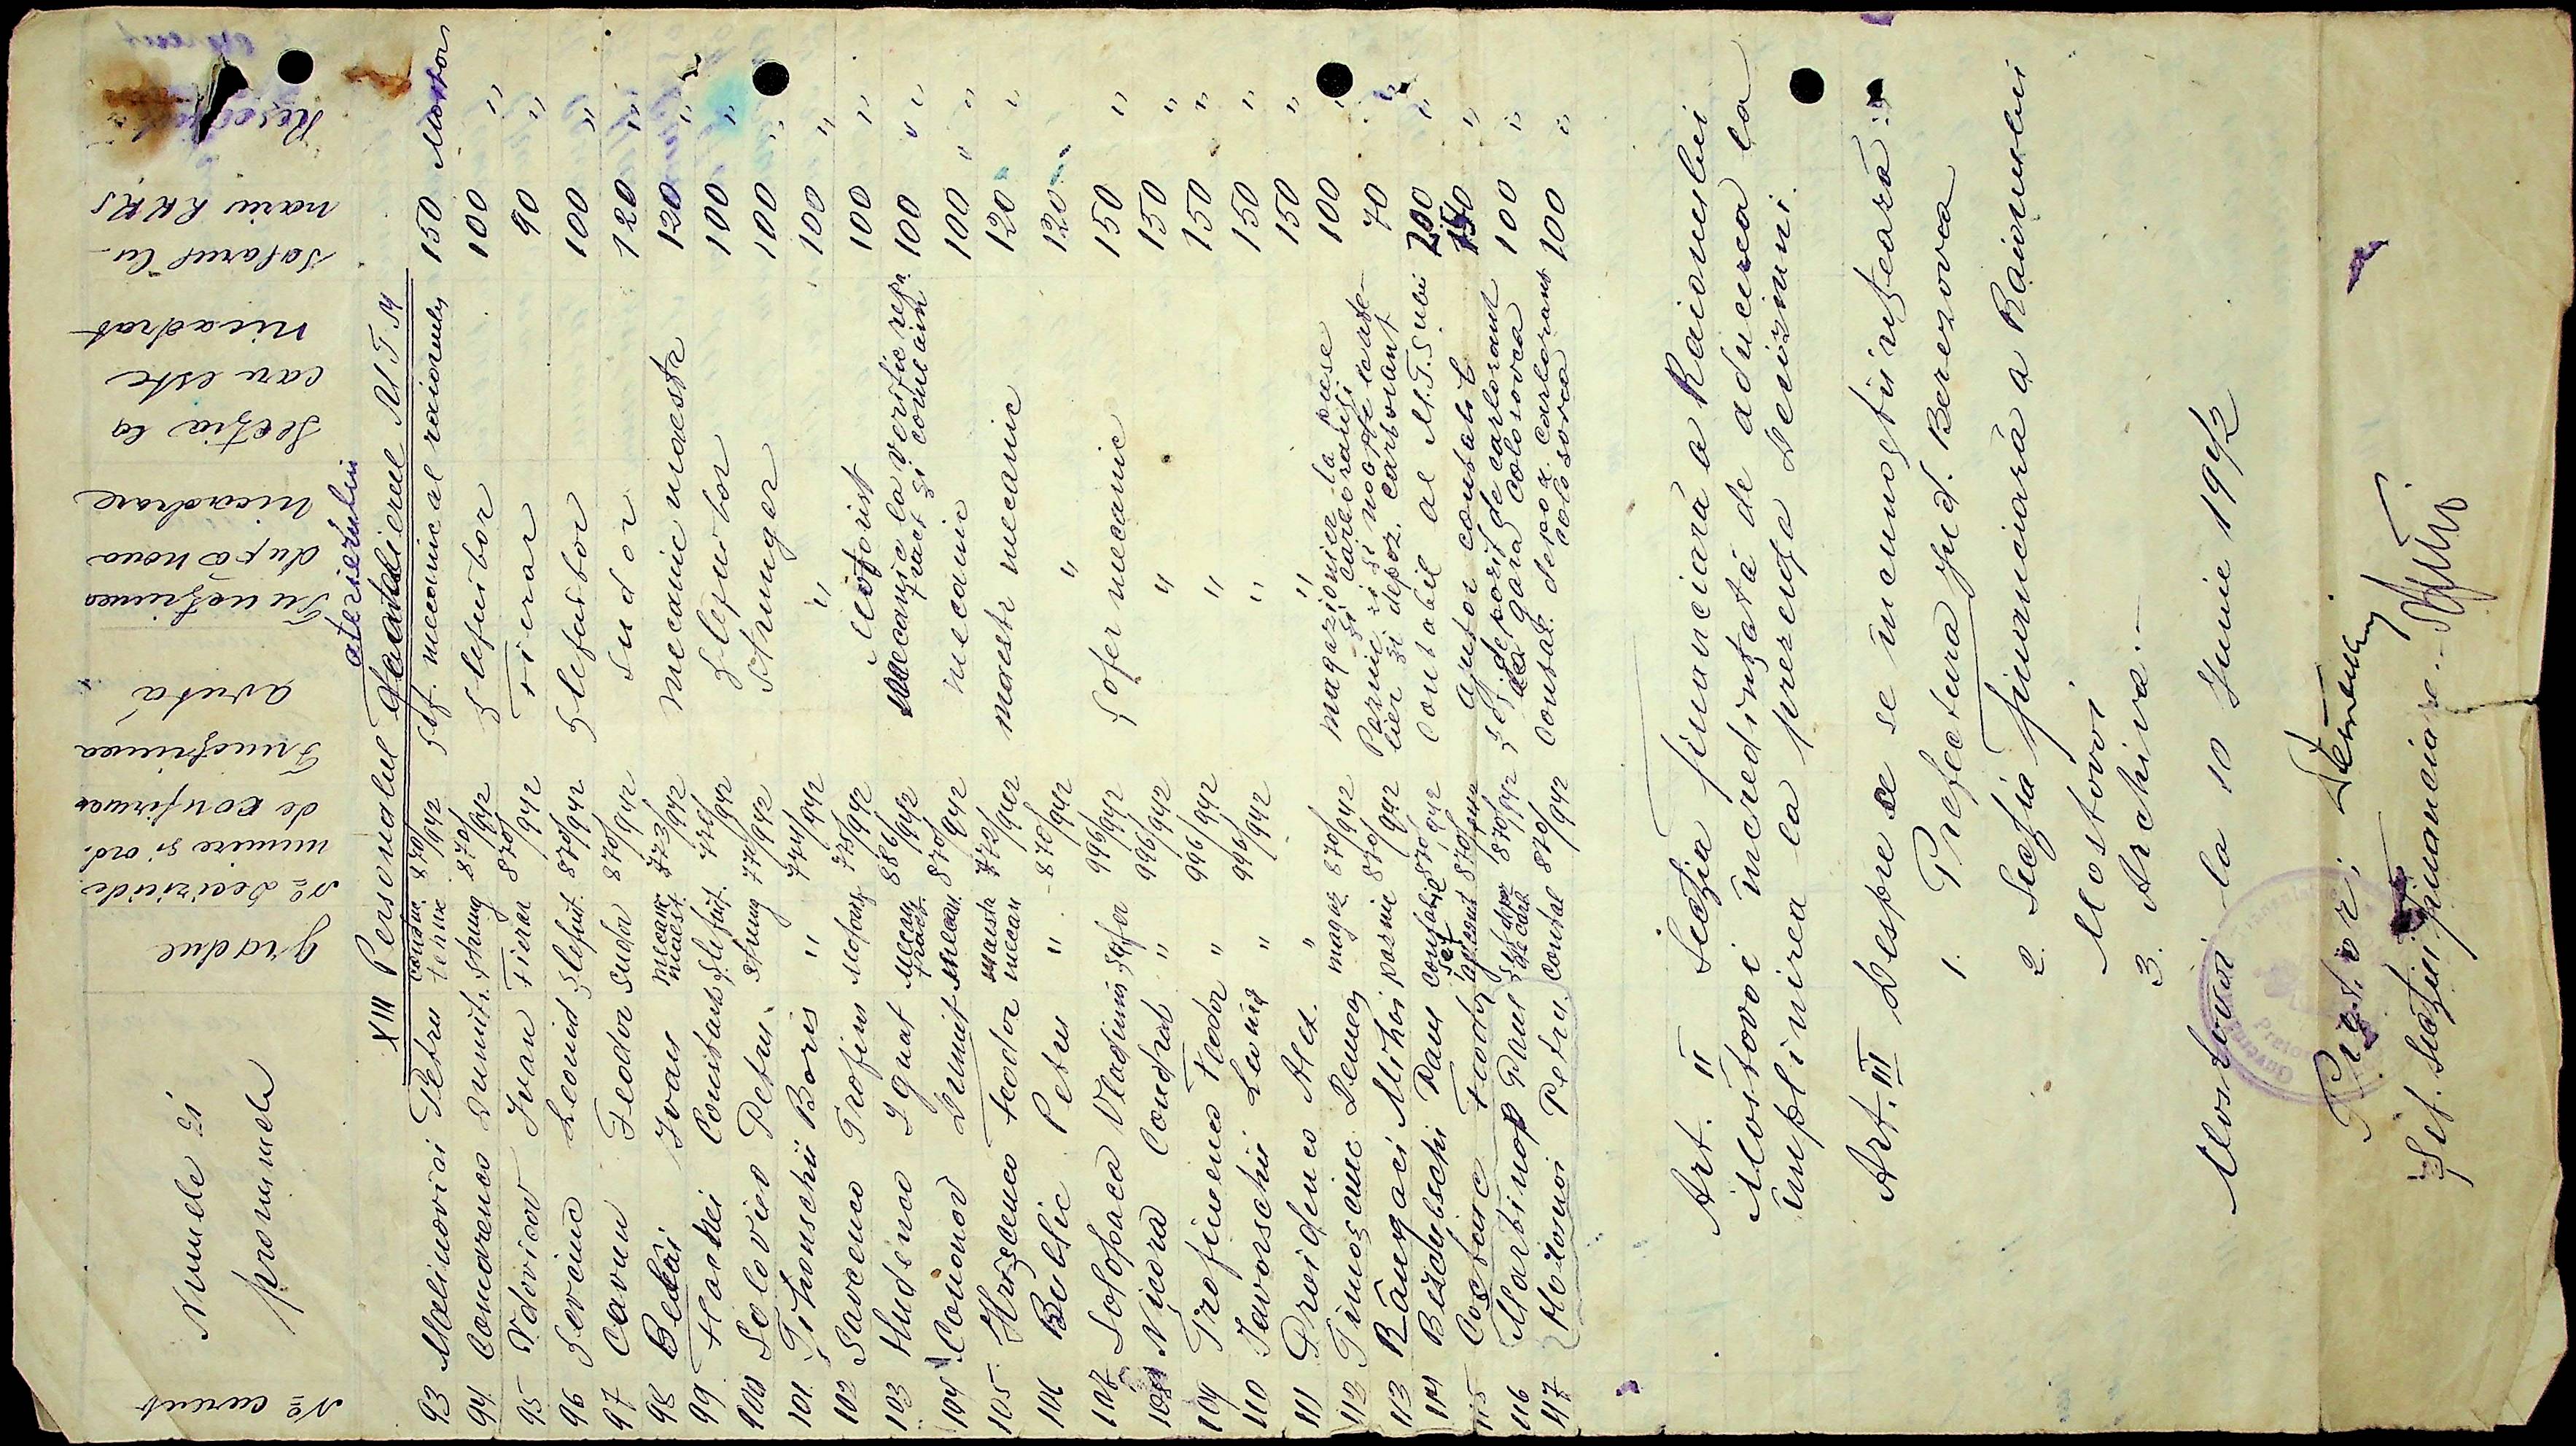 Nº curent
Numele și pronumele
Gradul
Nº Deciziei de numire și ord. de confirmare
Funcțiunea avută
Funcțiunea după noua încadrare
Secția la care este încadrat
Salariul lunar în RKKS
XIII Personalul atelierului M T M
93 Malinovici Petru conduc. tehnic 870/942 Șef. mecanic al raionului 150 Mostovoi
94 Comarenco Dumitr. strung 870/942 Șlefuitor 100 "
95 Vdovicov Ivan Fierar 870/942 Fierar 90 "
96 Șevcinc Leonid Șlefuit. 870/942 Șlefuitor 100 "
97 Cavun Feodor Sudor 870/942 Sudor 120 "
98 Ivan mecanic maestr. 773/942 Mecanic maestr 120 "
99 Haskei Constant. Șlefuit. 942 Șlefuitor 100 "
100 Soloviev Petru strung 942 Strungar 100 "
101 Tihonschii Boris " 942 " 100 "
102 Savcenco Trofim Motorist 775/942 Motorist 100 "
103 Hudenco Ignat mecan. tract. 886/942 Mecanic la verific. repa. tract și combain 100 " "
104 Cononov Dumitr mecan. 870/942 mecanic 100 " "
105 Hrișcenco Feodor maestr mecan 772/942 maestr mecanic 120 "
106 Petru " 870/942 " 120 "
107 Solopaca Vladimir Șofer 996/942 Șofer mecanic 150 "
108 Nicora Condrat " 996/942 " 150 "
109 Trofimenco Feodor " 996/942 " 150 "
110 Iavorschii " 996/942 " 150 "
111 Proidenco Alex. " " 150 "
112 Demeon magaz. 870/942 magazioner la piese și carboranți 100 "
113 Rângaci Mihai paznic 870/942 Paznic zi și noapte la atelier și depoz. carborant 70 "
114 Pavel contabil șef 870/942 Contabil al M.T.S ului 200 "
115 Feodor agent 870/942 ajutor contabil 150 "
116 Martinov Pavel Șef depoz de carb. 870/942 Șef depozit de carborant la gara Colosovca 100 "
117 Petru contab 870/942 Contab. depoz. carborant Colosovca 100 "
Art. II Secția financiară a Raionului
Mostovoi încredințată de aducerea la
împlinirea la prezenta Deciziuni.
Art. III Despre ce se încunoștiințează:
1. Prefectura Jud. Berezovca
2. Secția financiară a Raionului
Mostovoi
3. Archiva.-
Mostovoi la 10 Iunie 1942
Pretor,
Șef. Secției financiare.-